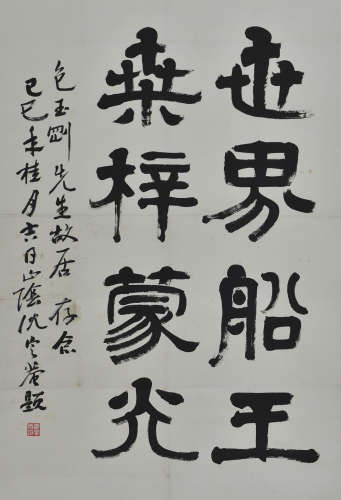 世界船王
桑梓蒙光
包玉刚先生故居存念
己巳年桂月吉日山陰沈定菴題